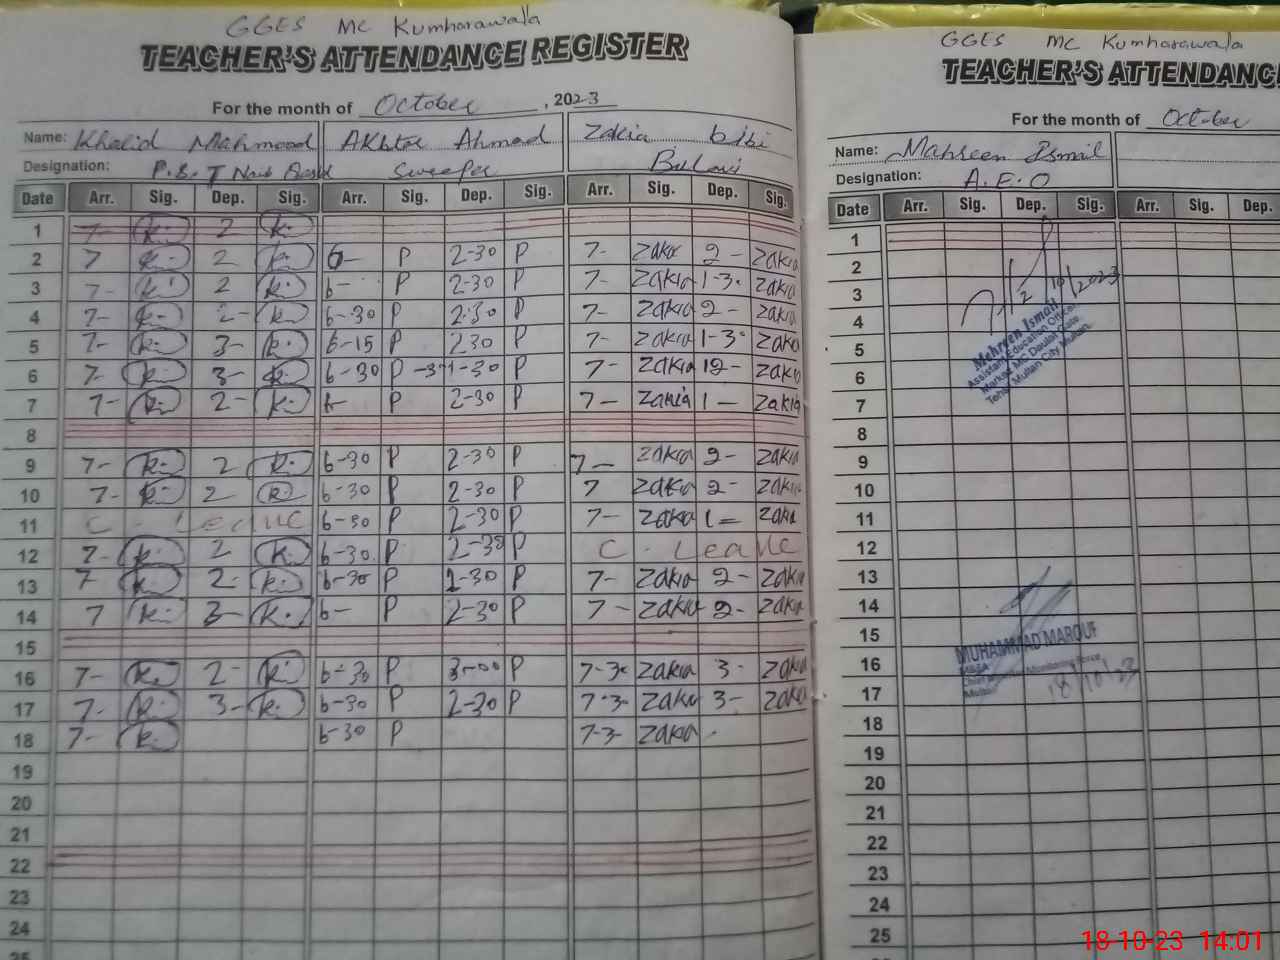 GGES MC Kumharawala
TEACHER'S ATTENDANCE REGISTER
For the month of October, 2023
Name: Khalid Mahmood Akhtar Ahmad Zakia bibi
Designation: P.S.T Sweeper
Date Arr. Sig. Dep. Sig. Arr. Sig. Dep. Sig. Arr. Sig. Dep. Sig.
1 7- k. 2 k.
2 7 k. 2 k. 6- P 2-30 P 7- Zakia 2- Zakia
3 7- k. 2 k. 6- P 2-30 P 7- Zakia 1-3. Zakia
4 7- k. 2- k. 6-30 P 2-30 P 7- Zakia 2- Zakia
5 7- k. 3- k. 6-15 P 230 P 7- Zakia 1-3. Zakia
6 7- k. 3- k. 6-30 P 1-30 P 7- Zakia 12- Zakia
7 7- k. 2- k. 6- P 2-30 P 7- Zakia 1- Zakia
8
9 7- k. 2 k. 6-30 P 2-30 P 7- Zakia 2- Zakia
10 7- k. 2 k. 6-30 P 2-30 P 7 Zakia 2- Zakia
11 C. Leave 6-30 P 2-30 P 7- Zakia 1= Zakia
12 7- k. 2 k. 6-30. P 2-30 P C. Leave
13 7 k. 2- k. 6-30 P 2-30 P 7- Zakia 2- Zakia
14 7 k. 3- k. 6- P 2-30 P 7- Zakia 2- Zakia
15
16 7- k. 2- k. 6-30 P 3-00 P 7-3. Zakia 3- Zakia
17 7- k. 3- k. 6-30 P 2-30 P 7-3- Zakia 3- Zakia
18 7- k. 6-30 P 7-3- Zakia
19
20
21
22
23
24
25
GGES MC Kumharawala
TEACHER'S ATTENDANC
For the month of October
Name: Mahreen Ismail
Designation: A.E.O
Date Arr. Sig. Dep. Sig. Arr. Sig. Dep.
1
2
3
12/10/2023
4
Mehreen Ismail
5
Assistant Education Officer
Markaz MC Daulat Gate
6
Multan City Multan.
7
8
9
10
11
12
13
14
15
MUHAMMAD MAROUF
16
Monitoring Force
17
18/10/23
18
19
20
21
22
23
24
25
18-10-23 14:01